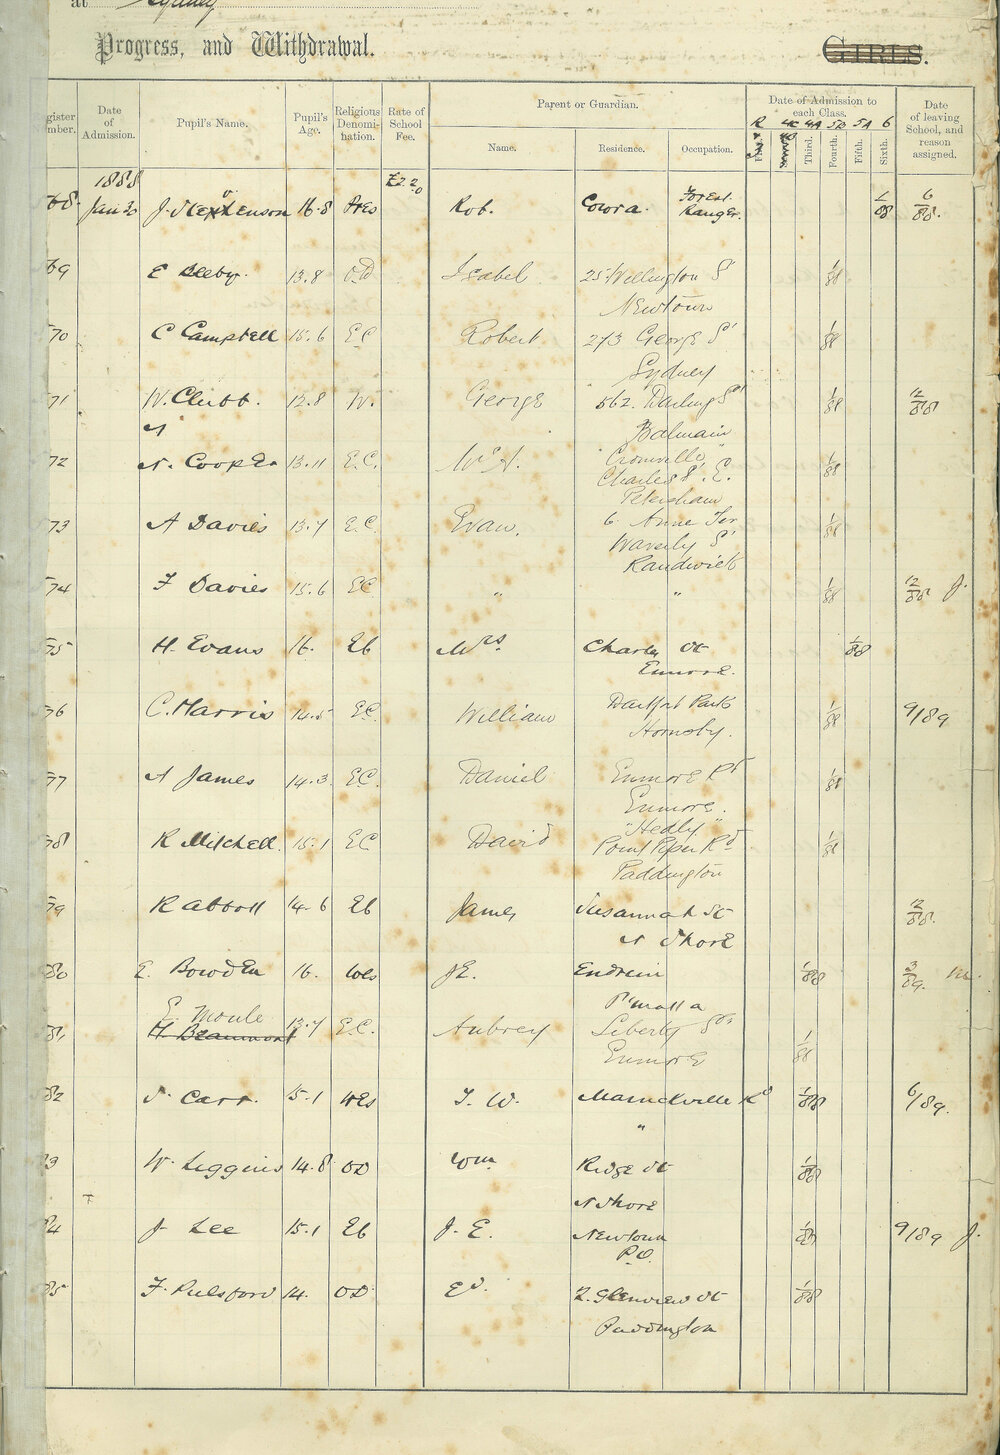 at Sydney
Progress, and Withdrawal. GIRLS.
Register Number. Date of Admission. Pupil's Name. Pupil's Age. Religious Denomination. Rate of School Fee. Parent or Guardian. Name. Residence. Occupation. Date of Admission to each Class. Third. Fourth. Fifth. Sixth. Date of leaving School, and reason assigned.
R 4C 4B 4A 5B 5A 6
1888 £2.2.0
68. Jan 30 J. Stephenson 16.8 Pres Rob. Cowra. Forest Ranger. 6/88.
69 E Seeby. 13.8 OD Isabel 25 Wellington St 1/88
Newtown
70 C Campbell 15.6 EC Robert 273 George St 1/88
Sydney
71 W. Clubb. 12.8 W. George 562. Darling St 1/88 12/88
Balmain
72 N. Cooper 13.11 E.C. 1/88
Charles St. E.
Petersham
73 A Davies 13.7 E.C. Evan. 6 Anne Ter 1/88
Waverly St
Randwick
74 F Davies 15.6 EC " " 1/88 12/88 J.
75 H. Evans 16. Mrs. Charles St 1/88
Enmore.
76 C. Harris 14.5 EC. William Park 1/88 9/89
Hornsby.
77 A James 14.3 EC. Daniel Enmore Rd 1/88
Enmore.
78 R Mitchell. 15.1 EC David "Hedly" 1/88
Point Piper Rd
Paddington
79 R Abbott 14.6 James Susannah St 12/88.
N Shore
80 E. Bowden 16. Wes J.E. 1/88 3/89.
P'matta
81 E. Moule 13.7 E.C. Aubrey Liberty St 1/88
H. Beaumont Enmore
82 S. Carr. 15.1 Wes T. W. Marrickville Rd 1/88 6/89.
"
83 W. Liggins 14.8 OD Wm Ridge St 1/88
N Shore
84 J Lee 15.1 J. E. Newtown 1/88 9/89 J.
P.O.
85 F. Pulsford 14. OD Ed. 2. Glenview St 1/88
Paddington